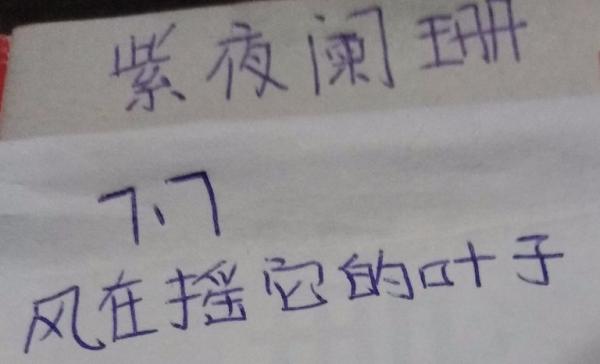 紫夜阑珊
7.7
风在摇它的叶子